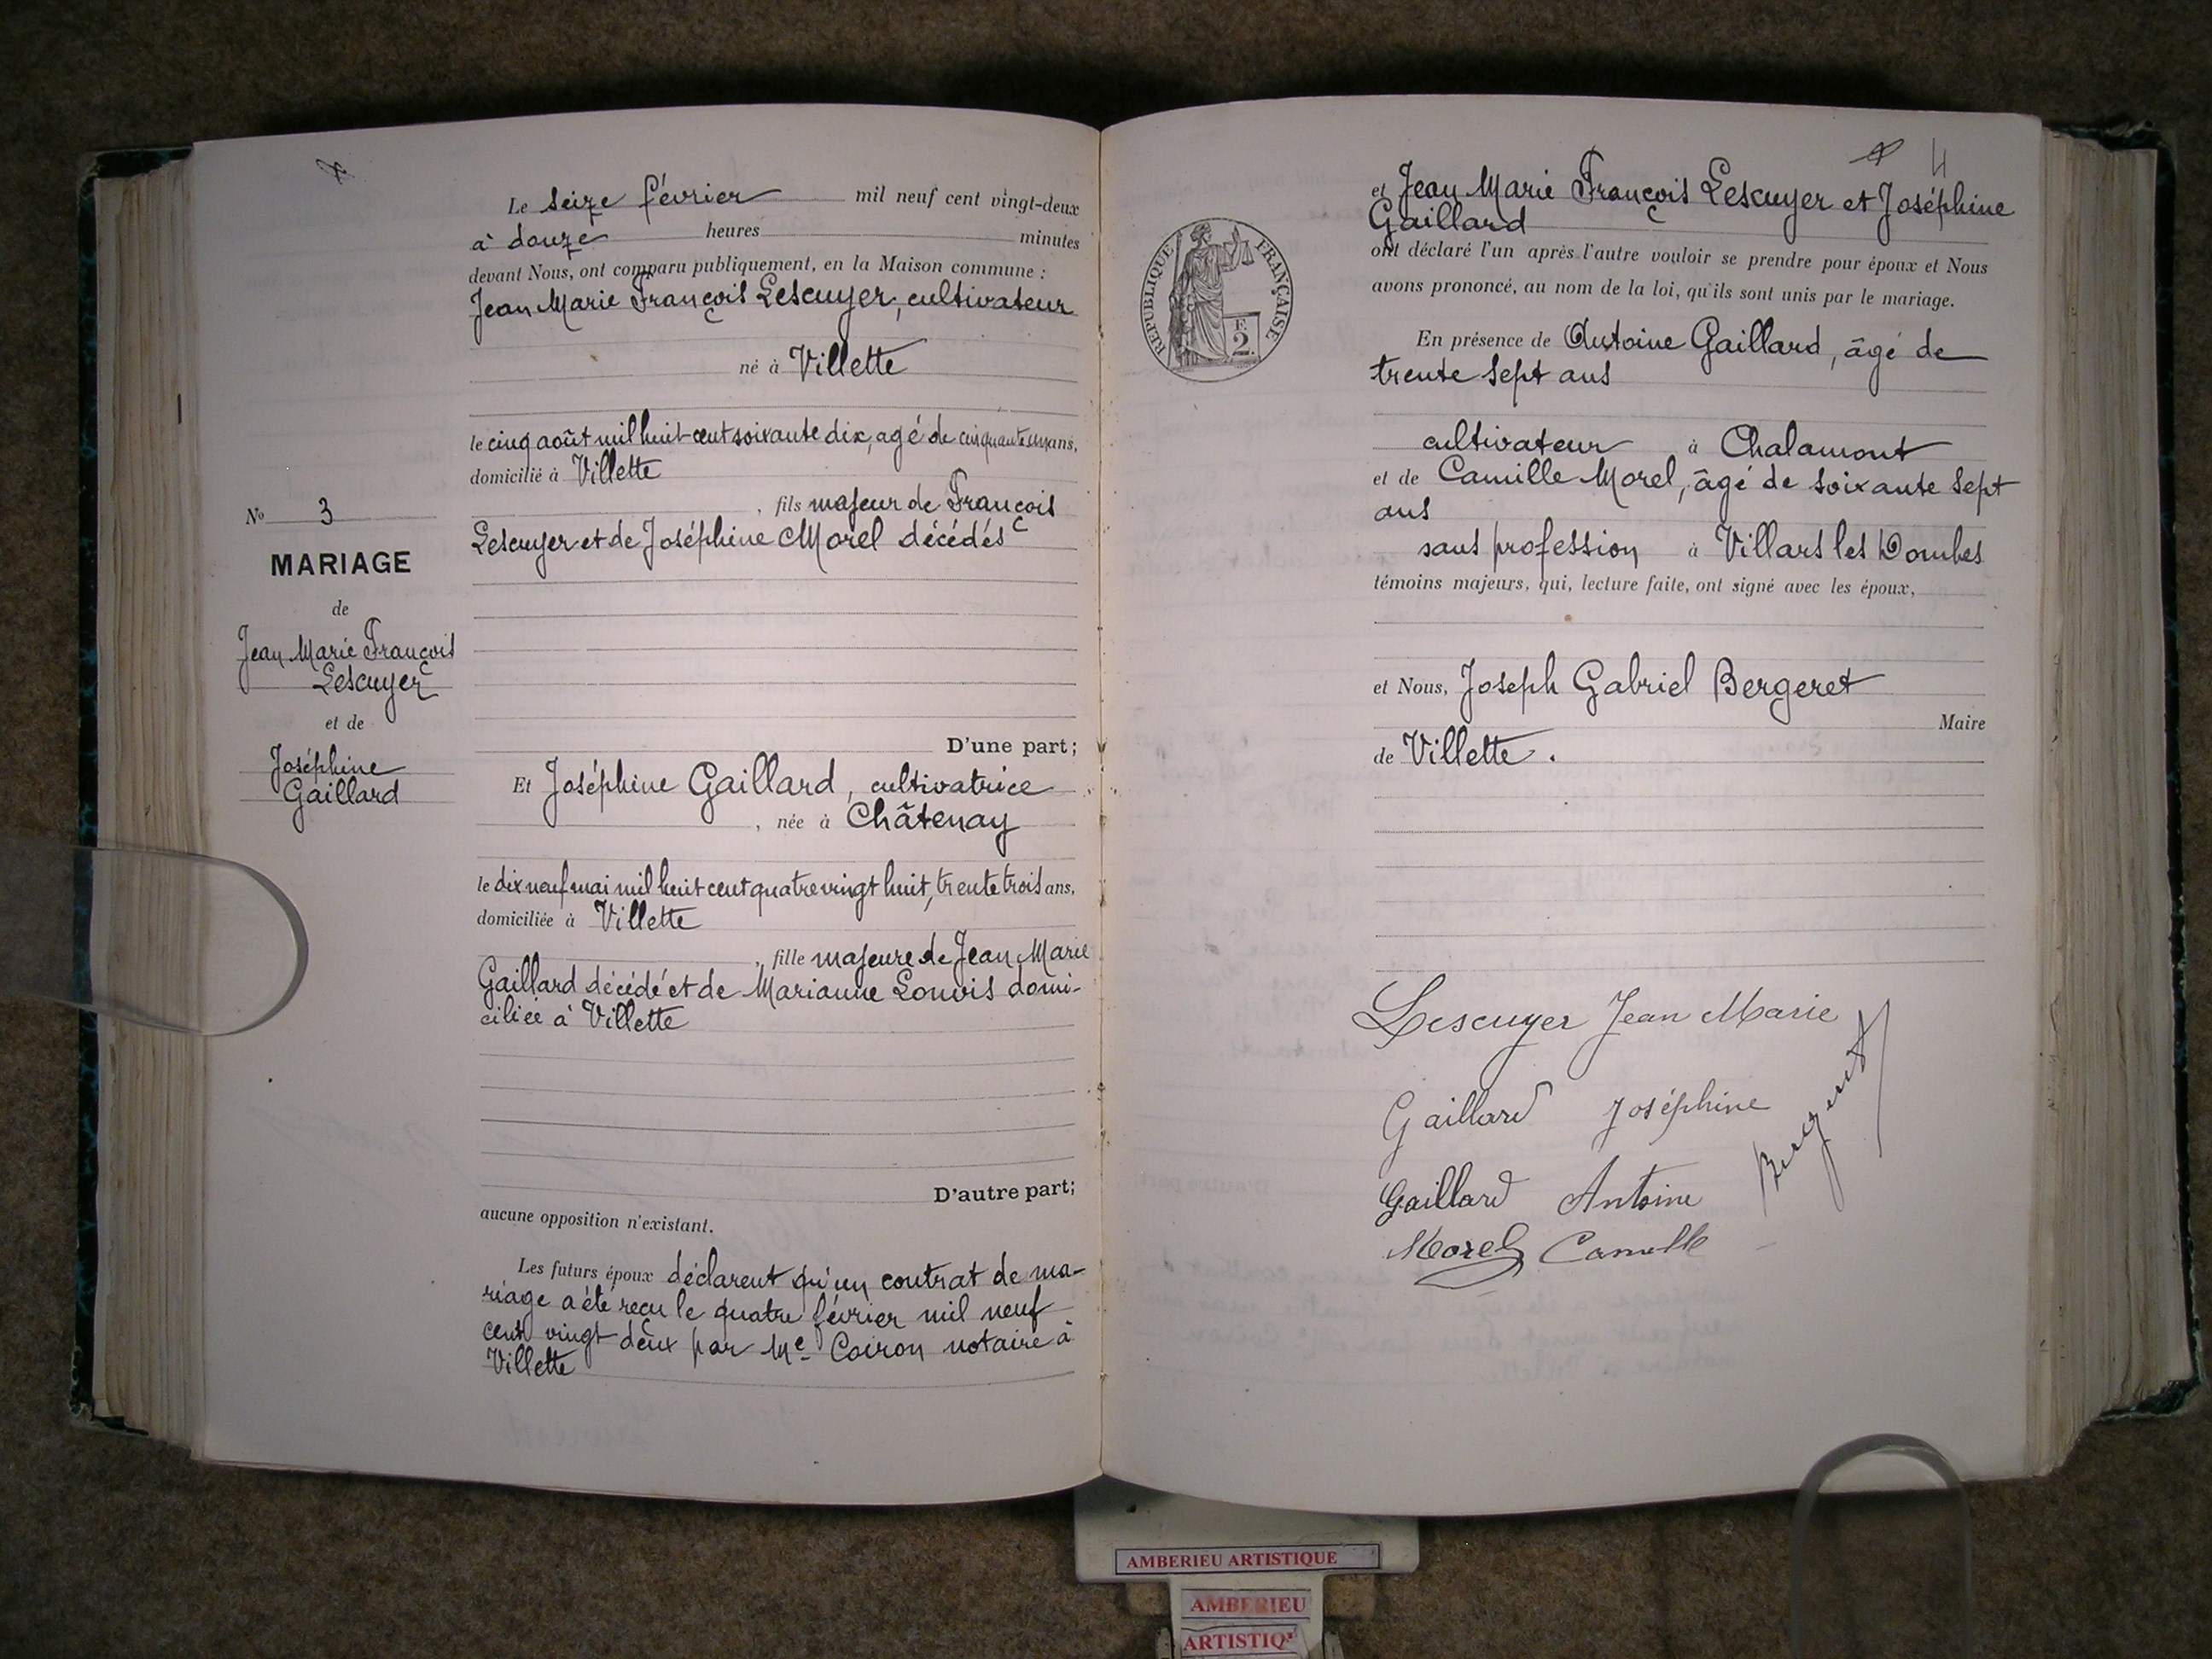 Le seize février mil neuf cent vingt-deux
à douze heures minutes
devant Nous, ont comparu publiquement, en la Maison commune :
Jean Marie François Lescuyer, cultivateur
né à Villette
le cinq août mil huit cent soixante dix, agé de cinquante un ans,
domicilié à Villette
, fils majeur de François
Lescuyer et de Joséphine Morel décédés
N° 3
MARIAGE
de
Jean Marie François
Lescuyer
et de
Joséphine
Gaillard
D'une part;
Et Joséphine Gaillard, cultivatrice
, née à Châtenay
le dix neuf mai mil huit cent quatre vingt huit, trente trois ans,
domiciliée à Villette
, fille majeure de Jean Marie
Gaillard décédé et de Marianne Louvis domi-
ciliée à Villette
D'autre part;
aucune opposition n'existant.
Les futurs époux déclarent qu'un contrat de ma-
riage a été reçu le quatre février mil neuf
cent vingt deux par Me Coiron notaire à
Villette
4
et Jean Marie François Lescuyer et Joséphine
Gaillard
ont déclaré l'un après l'autre vouloir se prendre pour époux et Nous
avons prononcé, au nom de la loi, qu'ils sont unis par le mariage.
RÉPUBLIQUE FRANÇAISE
F.
2.
En présence de Antoine Gaillard, âgé de
trente sept ans
cultivateur à Chalamont
et de Camille Morel, âgé de soixante sept
ans
sans profession à Villars les Dombes
témoins majeurs, qui, lecture faite, ont signé avec les époux,
et Nous, Joseph Gabriel Bergeret
Maire
de Villette.
Lescuyer Jean Marie
Gaillard Joséphine
Bergeret
Gaillard Antoine
Morel Camille
AMBERIEU ARTISTIQUE
AMBERIEU
ARTISTIQ